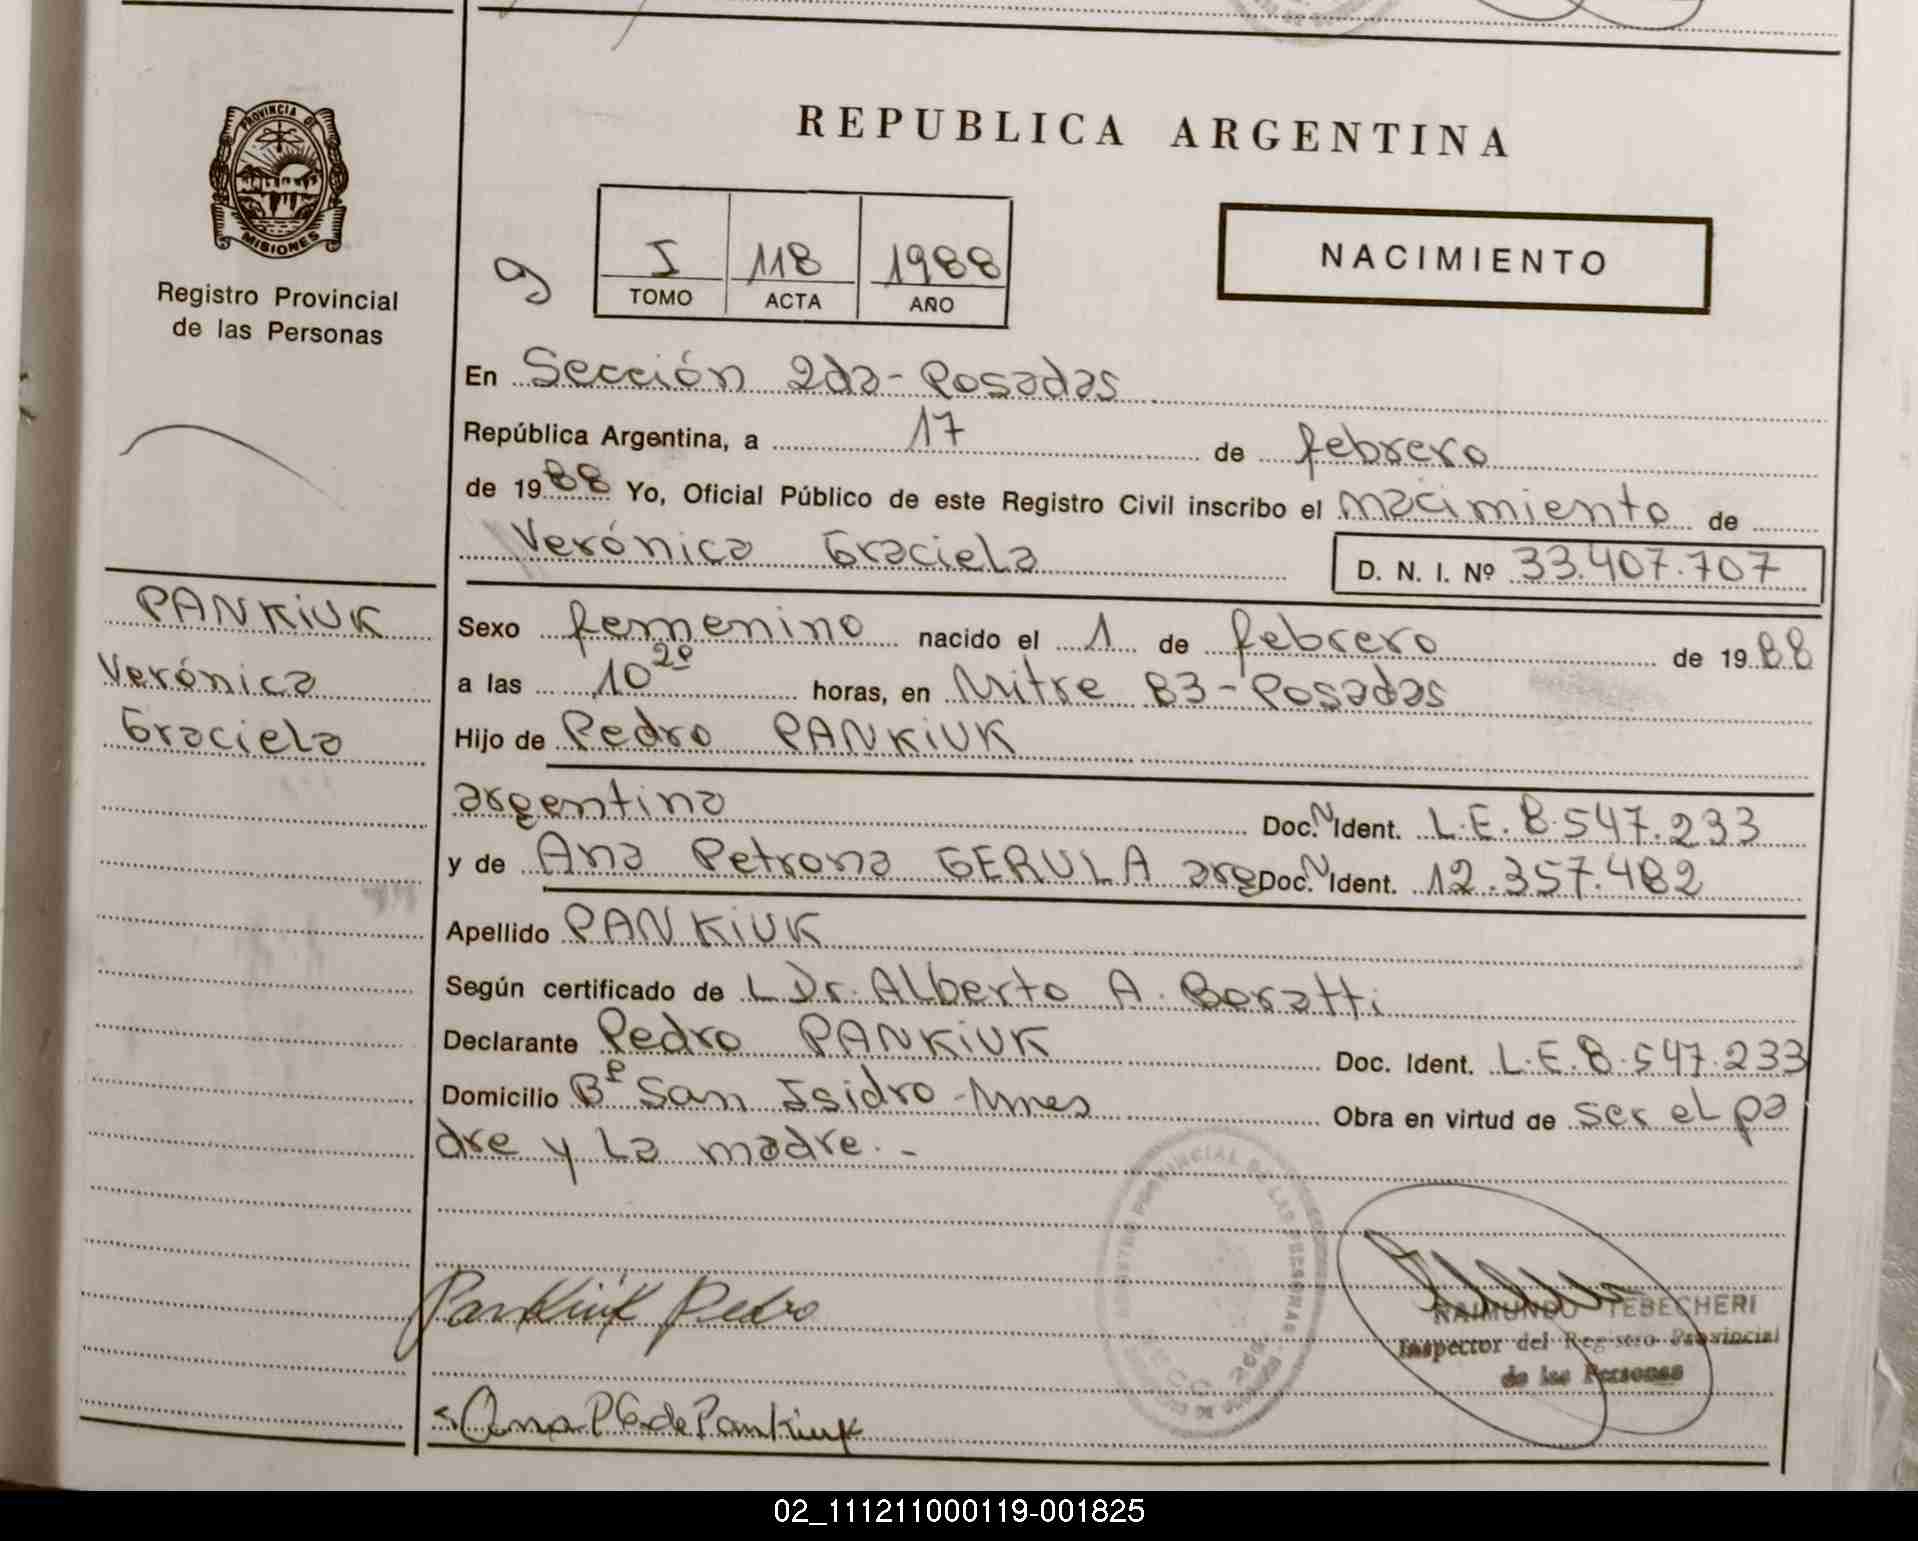 REPUBLICA ARGENTINA
PROVINCIA DE
MISIONES
Registro Provincial
de las Personas
I 118 1988
TOMO ACTA AÑO
NACIMIENTO
En Sección 2da-Posadas
República Argentina, a 17 de febrero
de 1988 Yo, Oficial Público de este Registro Civil inscribo el nacimiento de
Verónica Graciela D. N. I. Nº 33.407.707
PANKiUK
Verónica
Graciela
Sexo femenino nacido el 1 de febrero de 1988
a las 10 20 horas, en Mitre 83-Posadas
Hijo de Pedro PANKiUK
argentino Doc. N Ident. L.E. 8.547.233
y de Ana Petrona GERULA arg Doc. N Ident. 12.357.482
Apellido PANKiUK
Según certificado de L Dr. Alberto A. Boratti
Declarante Pedro PANKiUK Doc. Ident. L.E. 8.547.233
Domicilio Bº San Isidro-Mnes Obra en virtud de ser el pa
dre y la madre.-
Pankiuk Pedro
RAIMUNDO TEBECHERI
Inspector del Registro Provincial
de las Personas
Ana P G de Pankiuk
02_111211000119-001825